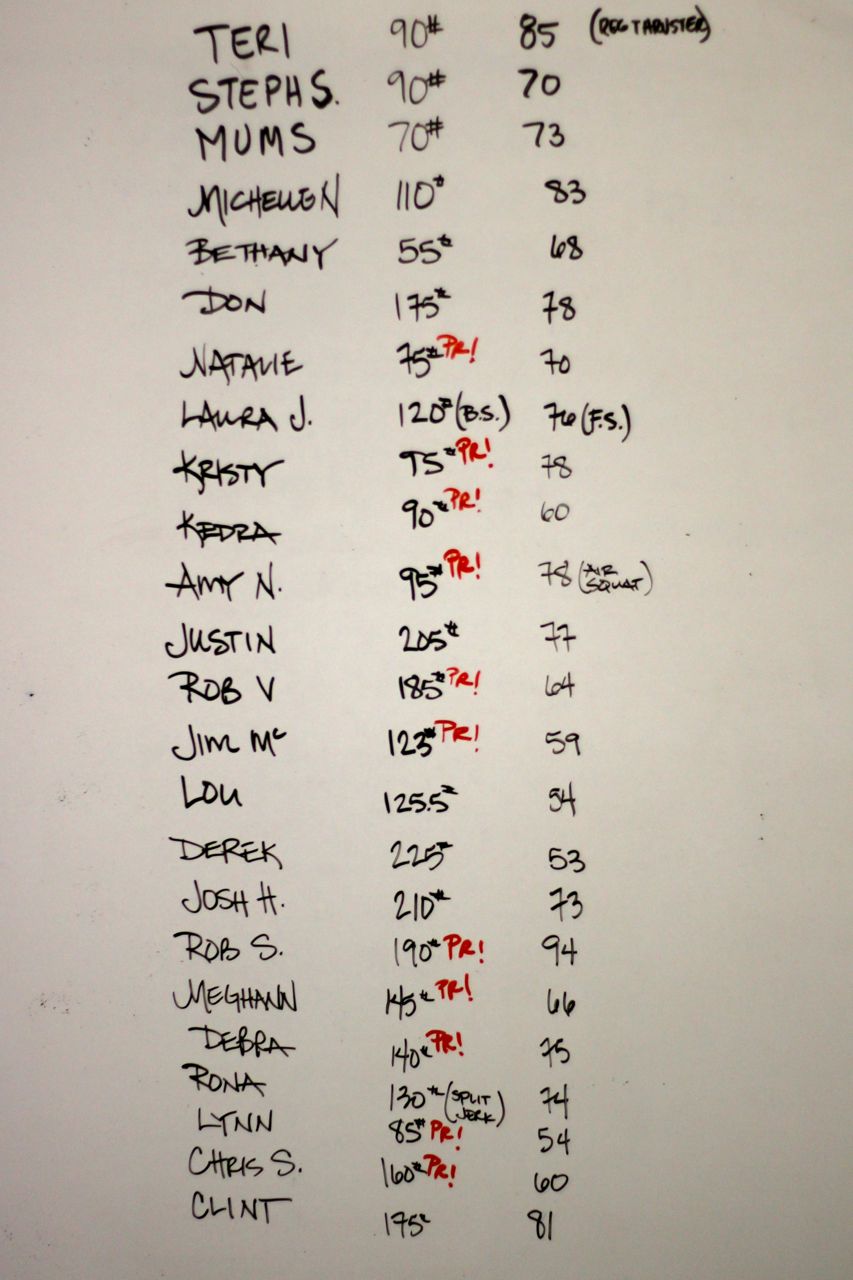 TERI 90# 85 (REG THRUSTER)
STEPH S. 90# 70
MUMS 70# 73
MICHELLE N 110# 83
BETHANY 55# 68
DON 175# 78
NATALIE 75# PR! 70
LAURA J. 120# (B.S.) 76 (F.S.)
KRISTY 95# PR! 78
KEDRA 90# PR! 60
AMY N. 95# PR! 78 (AIR SQUAT)
JUSTIN 205# 77
ROB V 185# PR! 64
JIM Mc 123# PR! 59
LOU 125.5# 54
DEREK 225# 53
JOSH H. 210# 73
ROB S. 190# PR! 94
MEGHANN 145# PR! 66
DEBRA 140# PR! 75
RONA 130# (SPLIT JERK) 74
LYNN 85# PR! 54
CHRIS S. 160# PR! 60
CLINT 175# 81